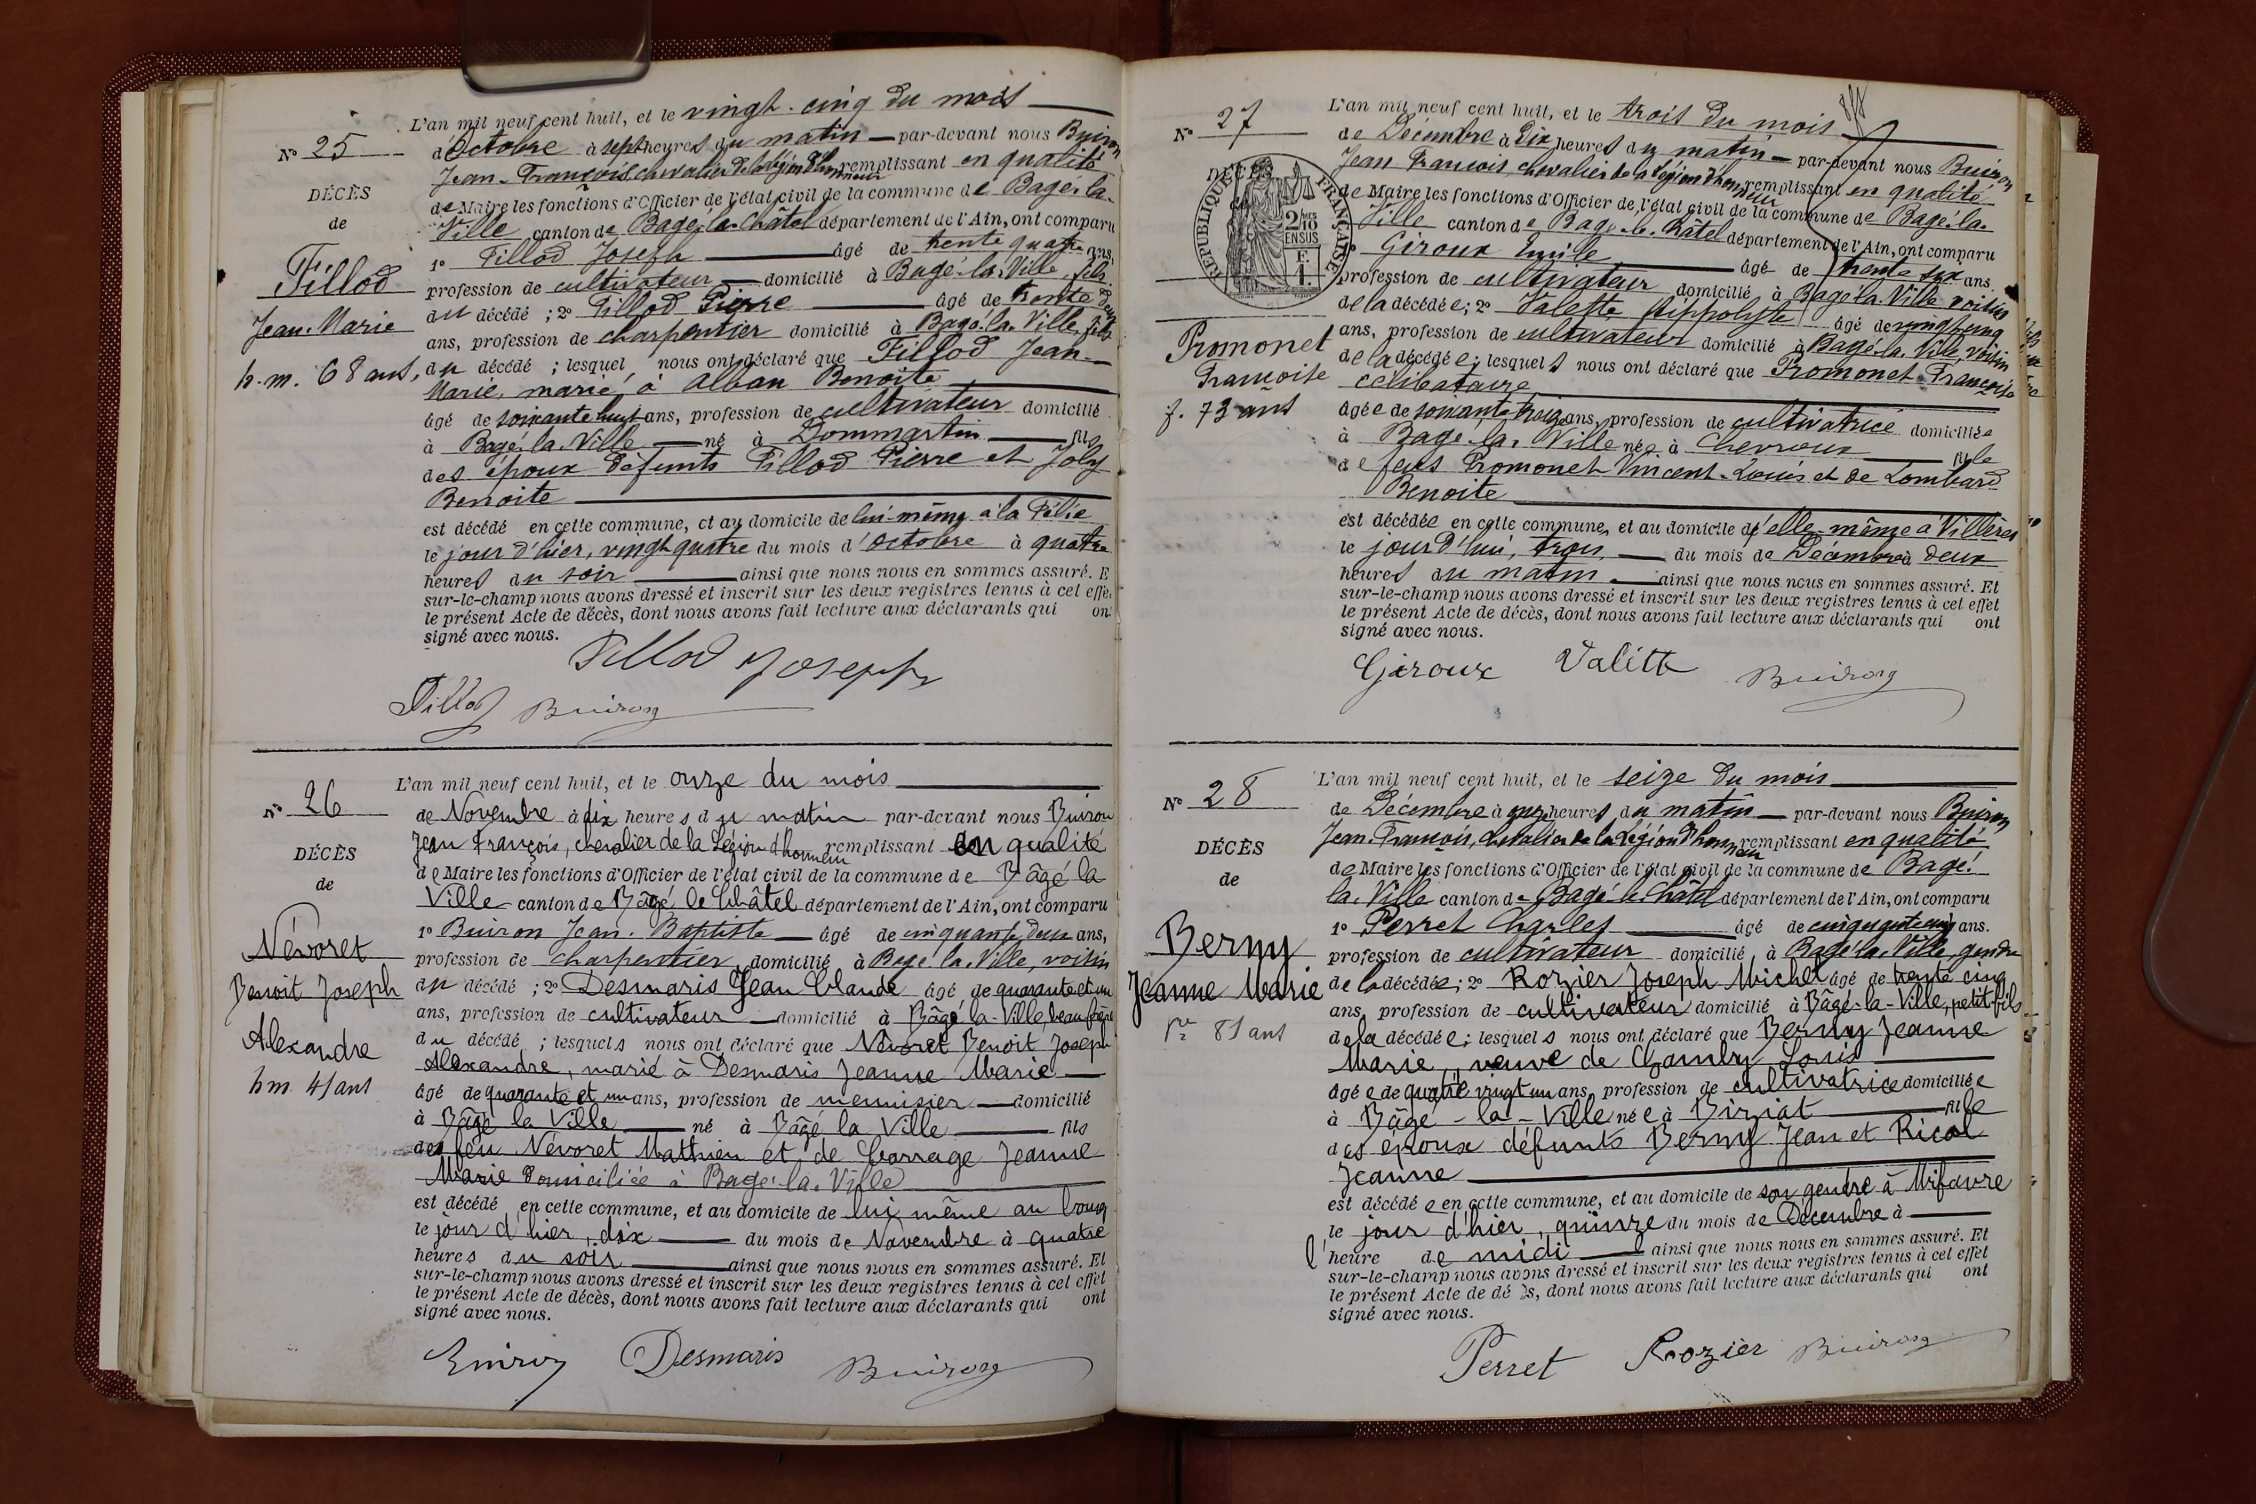 L'an mil neuf cent huit, et le vingt-cinq du mois
N° 25
d'Octobre à sept heures du matin par-devant nous Buiron
Jean-François, chevalier de la légion d'honneur remplissant en qualité
DÉCÈS
de Maire les fonctions d'Officier de l'état civil de la commune de Bagé-la-
de
Ville canton de Bagé-le-Châtel département de l'Ain, ont comparu
1° Fillod Joseph âgé de trente quatre ans,
Fillod
profession de cultivateur domicilié à Bagé-la-Ville, fils
du décédé ; 2° Fillod Pierre âgé de trente deux
Jean-Marie
ans, profession de charpentier domicilié à Bagé-la-Ville, fils
h. m. 68 ans,
du décédé ; lesquel nous ont déclaré que Fillod Jean-
Marie, marié à Alban Benoite
âgé de soixante huit ans, profession de cultivateur domicilié
à Bagé-la-Ville né à Dommartin fils
des époux défunts Fillod Pierre et Joly
Benoite
est décédé en cette commune, et au domicile de lui-même, à la Félie
le jour d'hier, vingt quatre du mois d'octobre à quatre
heures du soir ainsi que nous nous en sommes assuré. E
sur-le-champ nous avons dressé et inscrit sur les deux registres tenus à cet effe
le présent Acte de décès, dont nous avons fait lecture aux déclarants qui on
signé avec nous.
Fillod Joseph
Fillod Buiron
L'an mil neuf cent huit, et le onze du mois
N° 26
de Novembre à dix heures du matin par-devant nous Buiron
Jean François, chevalier de la Légion d'honneur remplissant en qualité
DÉCÈS
de Maire les fonctions d'Officier de l'état civil de la commune de Bâgé la
de
Ville canton de Bâgé le Châtel département de l'Ain, ont comparu
1° Buiron Jean-Baptiste âgé de cinquante deux ans,
Névoret
profession de charpentier domicilié à Bagé-la-Ville, voisin
Benoit Joseph
du décédé ; 2° Desmaris Jean Claude âgé de quarante et un
ans, profession de cultivateur domicilié à Bâgé-la-Ville, beau frère
Alexandre
du décédé ; lesquels nous ont déclaré que Névoret Benoit Joseph
Alexandre, marié à Desmaris Jeanne Marie
hm 41 ans
âgé de quarante et un ans, profession de menuisier domicilié
à Bâgé la Ville né à Bâgé la Ville fils
des feu Névoret Matthieu et de Carrage Jeanne
Marie domiciliée à Bagé-la-Ville
est décédé en cette commune, et au domicile de lui même au bourg
le jour d'hier, dix du mois de Novembre à quatre
heures du soir ainsi que nous nous en sommes assuré. Et
sur-le-champ nous avons dressé et inscrit sur les deux registres tenus à cet effet
le présent Acte de décès, dont nous avons fait lecture aux déclarants qui ont
signé avec nous.
Buiron Desmaris Buiron
L'an mil neuf cent huit, et le trois du mois
N° 27
de Décembre à dix heures du matin par-devant nous Buiron
Jean François, chevalier de la légion d'honneur remplissant en qualité
DÉCÈS
RÉPUBLIQUE FRANÇAISE
2/10 EN SUS
F. 1.
de Maire les fonctions d'Officier de l'état civil de la commune de Bagé-la-
Ville canton de Bagé-le-Châtel département de l'Ain, ont comparu
Giroux Emile âgé de trente six ans.
profession de cultivateur domicilié à Bagé-la-Ville voisin
de la décédée ; 2° Valette Hippolyte âgé de vingt cinq
Promonet
ans, profession de cultivateur domicilié à Bagé-la-Ville, voisin
de la décédée ; lesquels nous ont déclaré que Promonet Françoise
Françoise
célibataire
f. 73 ans
âgée de soixante treize ans, profession de cultivatrice domiciliée
à Bagé-la-Ville née à Chevroux fille
de feus Promonet Vincent-Louis et de Lombard
Benoite
est décédée en cette commune, et au domicile d'elle-même à Villères
le jour d'hui, trois du mois de Décembre à deux
heures du matin ainsi que nous nous en sommes assuré. Et
sur-le-champ nous avons dressé et inscrit sur les deux registres tenus à cet effet
le présent Acte de décès, dont nous avons fait lecture aux déclarants qui ont
signé avec nous.
Giroux Valette Buiron
L'an mil neuf cent huit, et le seize du mois
N° 28
de Décembre à onze heures du matin par-devant nous Buiron
Jean-François, chevalier de la Légion d'honneur remplissant en qualité
DÉCÈS
de Maire les fonctions d'Officier de l'état civil de la commune de Bagé-
de
la-Ville canton de Bagé-le-Châtel département de l'Ain, ont comparu
1° Perret Charles âgé de cinquante cinq ans.
Berny
profession de cultivateur domicilié à Bagé-la-Ville, gendre
Jeanne Marie
de la décédée ; 2° Rozier Joseph Michel âgé de trente cinq
ans, profession de cultivateur domicilié à Bâgé-la-Ville, petit-fils
Vve 81 ans
de la décédée ; lesquels nous ont déclaré que Berny Jeanne
Marie, veuve de Chamby Louis
âgée de quatre vingt un ans, profession de cultivatrice domiciliée
à Bâgé-la-Ville née à Biziat fille
des époux défunts Berny Jean et Ricol
Jeanne
est décédée en cette commune, et au domicile de son gendre à Mifavre
le jour d'hier, quinze du mois de Décembre à
l'heure de midi ainsi que nous nous en sommes assuré. Et
sur-le-champ nous avons dressé et inscrit sur les deux registres tenus à cet effet
le présent Acte de dé s, dont nous avons fait lecture aux déclarants qui ont
signé avec nous.
Perret Rozier Buiron